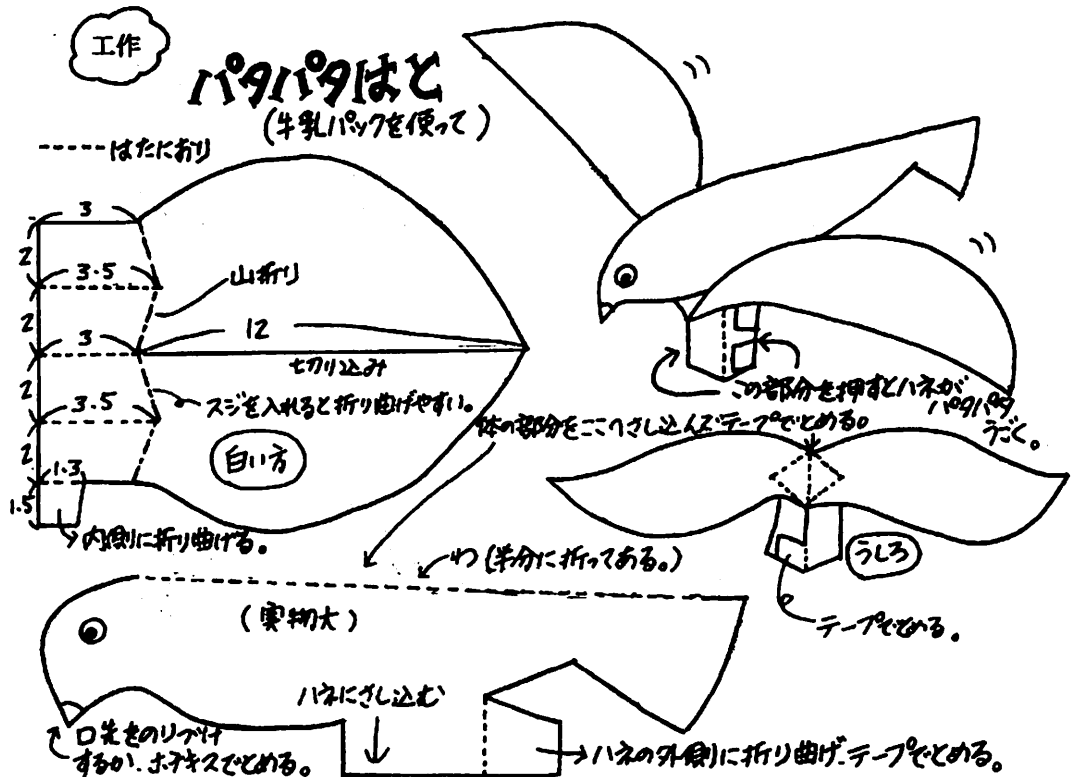 工作
パタパタはと
(牛乳パックを使って)
はたにおり
3
2
3.5
山折り
2
3
12
切り込み
2
スジを入れると折り曲げやすい。
3.5
2
白い方
1.3
1.5
内側に折り曲げる。
この部分を押すとハネが
パタパタ
うごく。
体の部分をここへさし込んでテープでとめる。
うしろ
テープでとめる。
わ(半分に折ってある。)
(実物大)
ハネにさし込む
口先をのりづけ
するか、ホチキスでとめる。
ハネの外側に折り曲げ、テープでとめる。